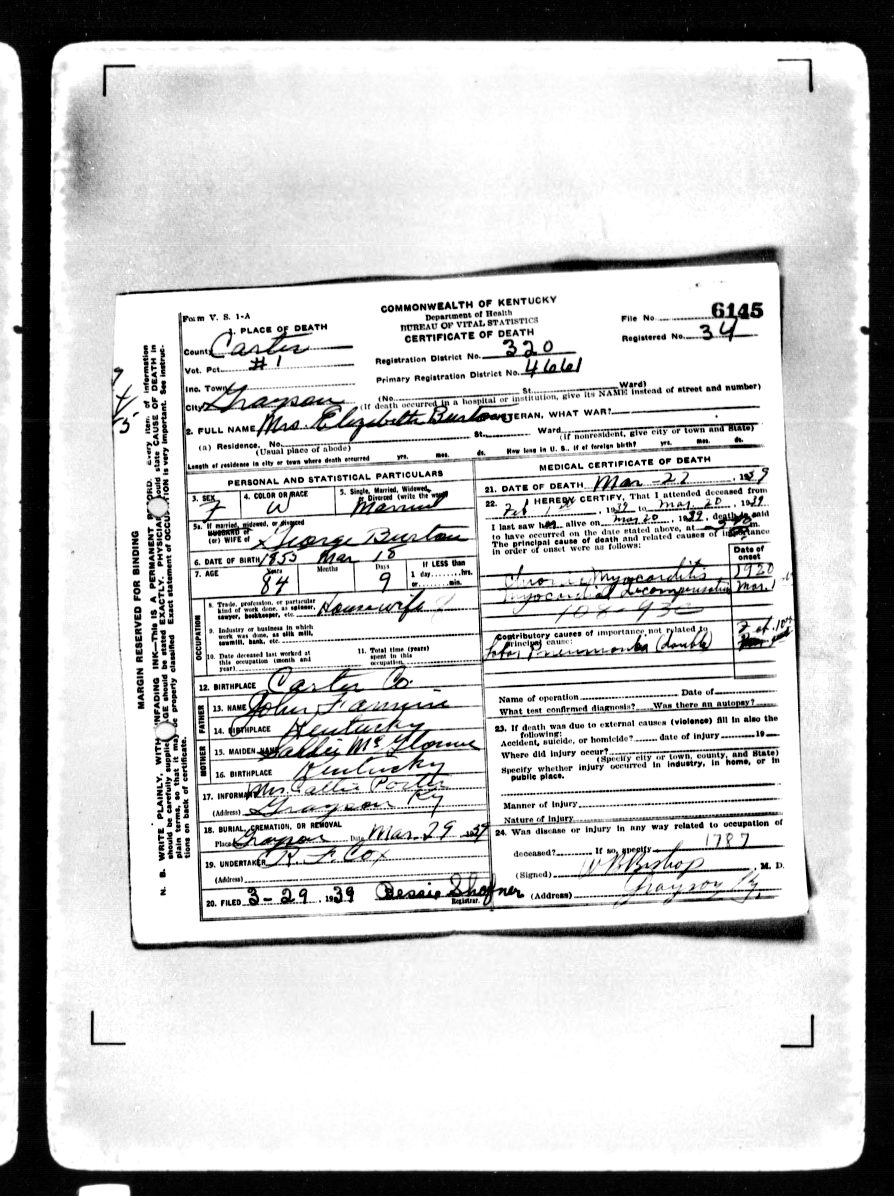 Form V. S. 1-A
COMMONWEALTH OF KENTUCKY
Department of Health
BUREAU OF VITAL STATISTICS
CERTIFICATE OF DEATH
File No. 6145
Registered No. 34
1. PLACE OF DEATH
County Carter
Vot. Pct. #1
Inc. Town
City Grayson
Registration District No. 320
Primary Registration District No. 4661
(No. St. Ward)
(If death occurred in a hospital or institution, give its NAME instead of street and number)
2. FULL NAME Mrs. Elizabeth Burton VETERAN, WHAT WAR?
(a) Residence. No. St. Ward
(Usual place of abode) (If nonresident, give city or town and State)
Length of residence in city or town where death occurred yrs. mos. ds. How long in U. S., if of foreign birth? yrs. mos. ds.
PERSONAL AND STATISTICAL PARTICULARS
3. SEX F
4. COLOR OR RACE W
5. Single, Married, Widowed, or Divorced (write the word) Married
5a. If married, widowed, or divorced
HUSBAND of
(or) WIFE of George Burton
6. DATE OF BIRTH 1855 Mar 18
7. AGE Years 84 Months Days 9 If LESS than 1 day hrs. or min.
OCCUPATION
8. Trade, profession, or particular kind of work done, as spinner, sawyer, bookkeeper, etc. Housewife
9. Industry or business in which work was done, as silk mill, sawmill, bank, etc.
10. Date deceased last worked at this occupation (month and year)
11. Total time (years) spent in this occupation
12. BIRTHPLACE Carter Co.
FATHER
13. NAME John Fannin
14. BIRTHPLACE Kentucky
MOTHER
15. MAIDEN NAME Sallie
16. BIRTHPLACE Kentucky
17. INFORMANT Mrs Callie
(Address) Grayson Ky
18. BURIAL, CREMATION, OR REMOVAL
Place Grayson Date Mar. 29 1939
19. UNDERTAKER R. F. Cox
(Address)
20. FILED 3-29, 1939 Bessie Shafner
Registrar.
MEDICAL CERTIFICATE OF DEATH
21. DATE OF DEATH Mar-27, 1939
22. I HEREBY CERTIFY, That I attended deceased from
Feb 1st, 1939 to Mar. 20, 1939
I last saw her alive on Mar 20, 1939, death is said
to have occurred on the date stated above, at m.
The principal cause of death and related causes of importance
in order of onset were as follows:
Date of onset
Chronic Myocarditis 1920
Myocardial Decompensation Mar. 1
Contributory causes of importance not related to
principal cause:
Lobar Pneumonia (double)
Name of operation Date of
What test confirmed diagnosis? Was there an autopsy?
23. If death was due to external causes (violence) fill in also the
following:
Accident, suicide, or homicide? date of injury 19
Where did injury occur?
(Specify city or town, county, and State)
Specify whether injury occurred in industry, in home, or in
public place.
Manner of injury
Nature of injury
24. Was disease or injury in any way related to occupation of
deceased? If so, specify 1787
(Signed) W B Bishop, M. D.
(Address) Grayson Ky.
MARGIN RESERVED FOR BINDING
N. B. WRITE PLAINLY, WITH UNFADING INK—This is A PERMANENT RECORD. Every item of information
should be carefully supplied. AGE should be stated EXACTLY. PHYSICIANS should state CAUSE OF DEATH in
plain terms, so that it may be properly classified. Exact statement of OCCUPATION is very important. See instruc-
tions on back of certificate.